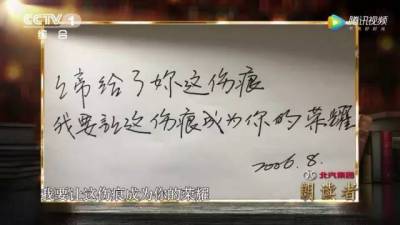 CCTV 1
综合
腾讯视频
上帝给了妳这伤痕
我要让这伤痕成为你的荣耀
2006.8.
北汽集团
朗读者
我要让这伤痕成为你的荣耀